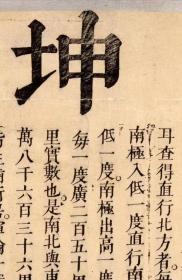 坤
耳查得直行北方者每
南極入低一度直行南
低一度南極出高一
每一度廣二百五十里
里實數也是南北與東
萬八千六百三十六里